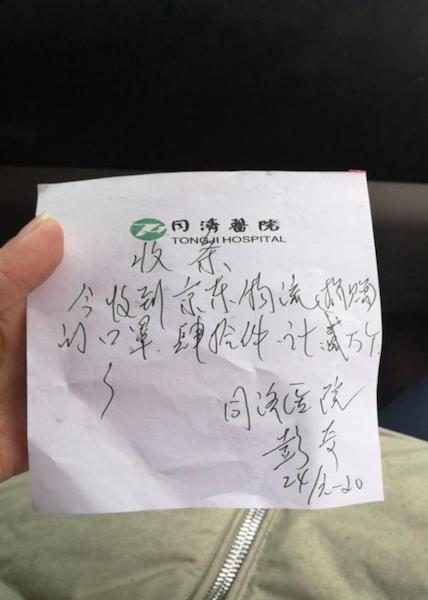 同濟醫院
TONGJI HOSPITAL
收条
今收到京东物流捐赠
的口罩肆拾件.计贰万个.
同济医院
彭
24/1-20